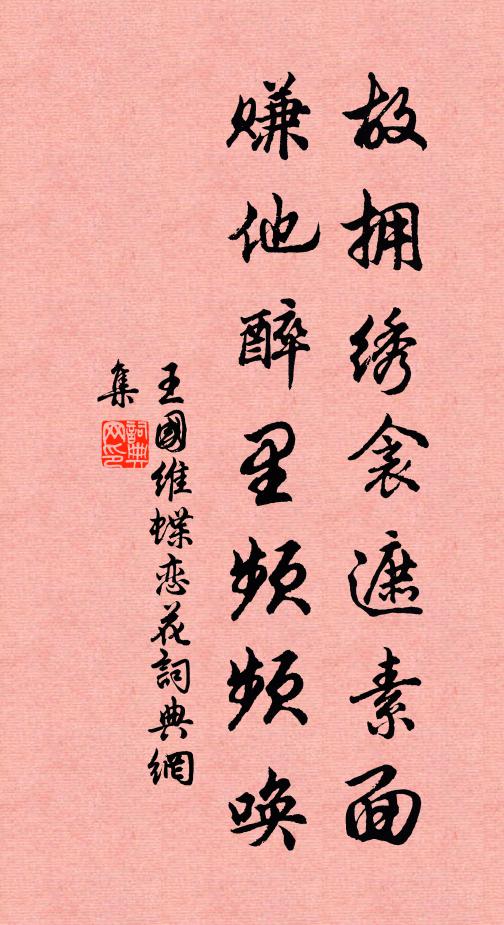 故拥绣衾遮素面
赚他醉里频频唤
王國维蝶恋花詞典網
集
詞典
网印